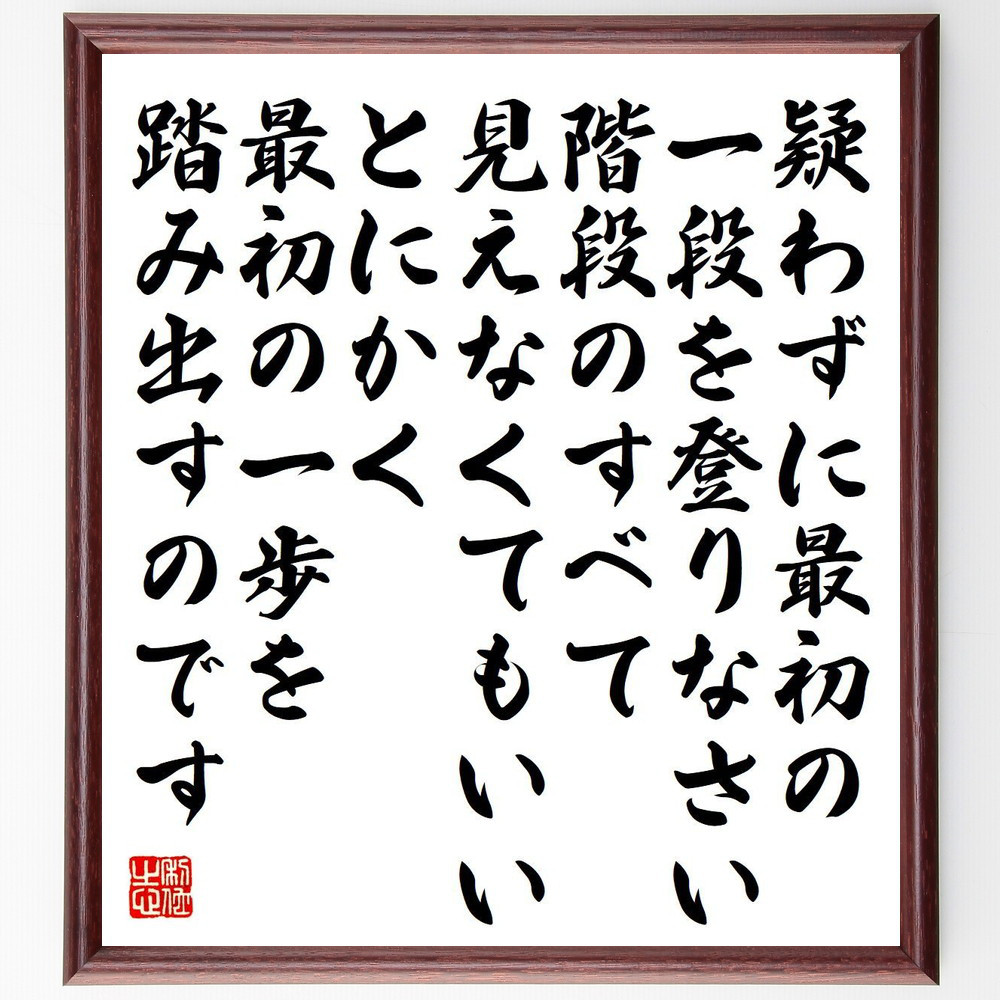 疑わずに最初の
一段を登りなさい
階段のすべて
見えなくてもいい
とにかく
最初の一歩を
踏み出すのです